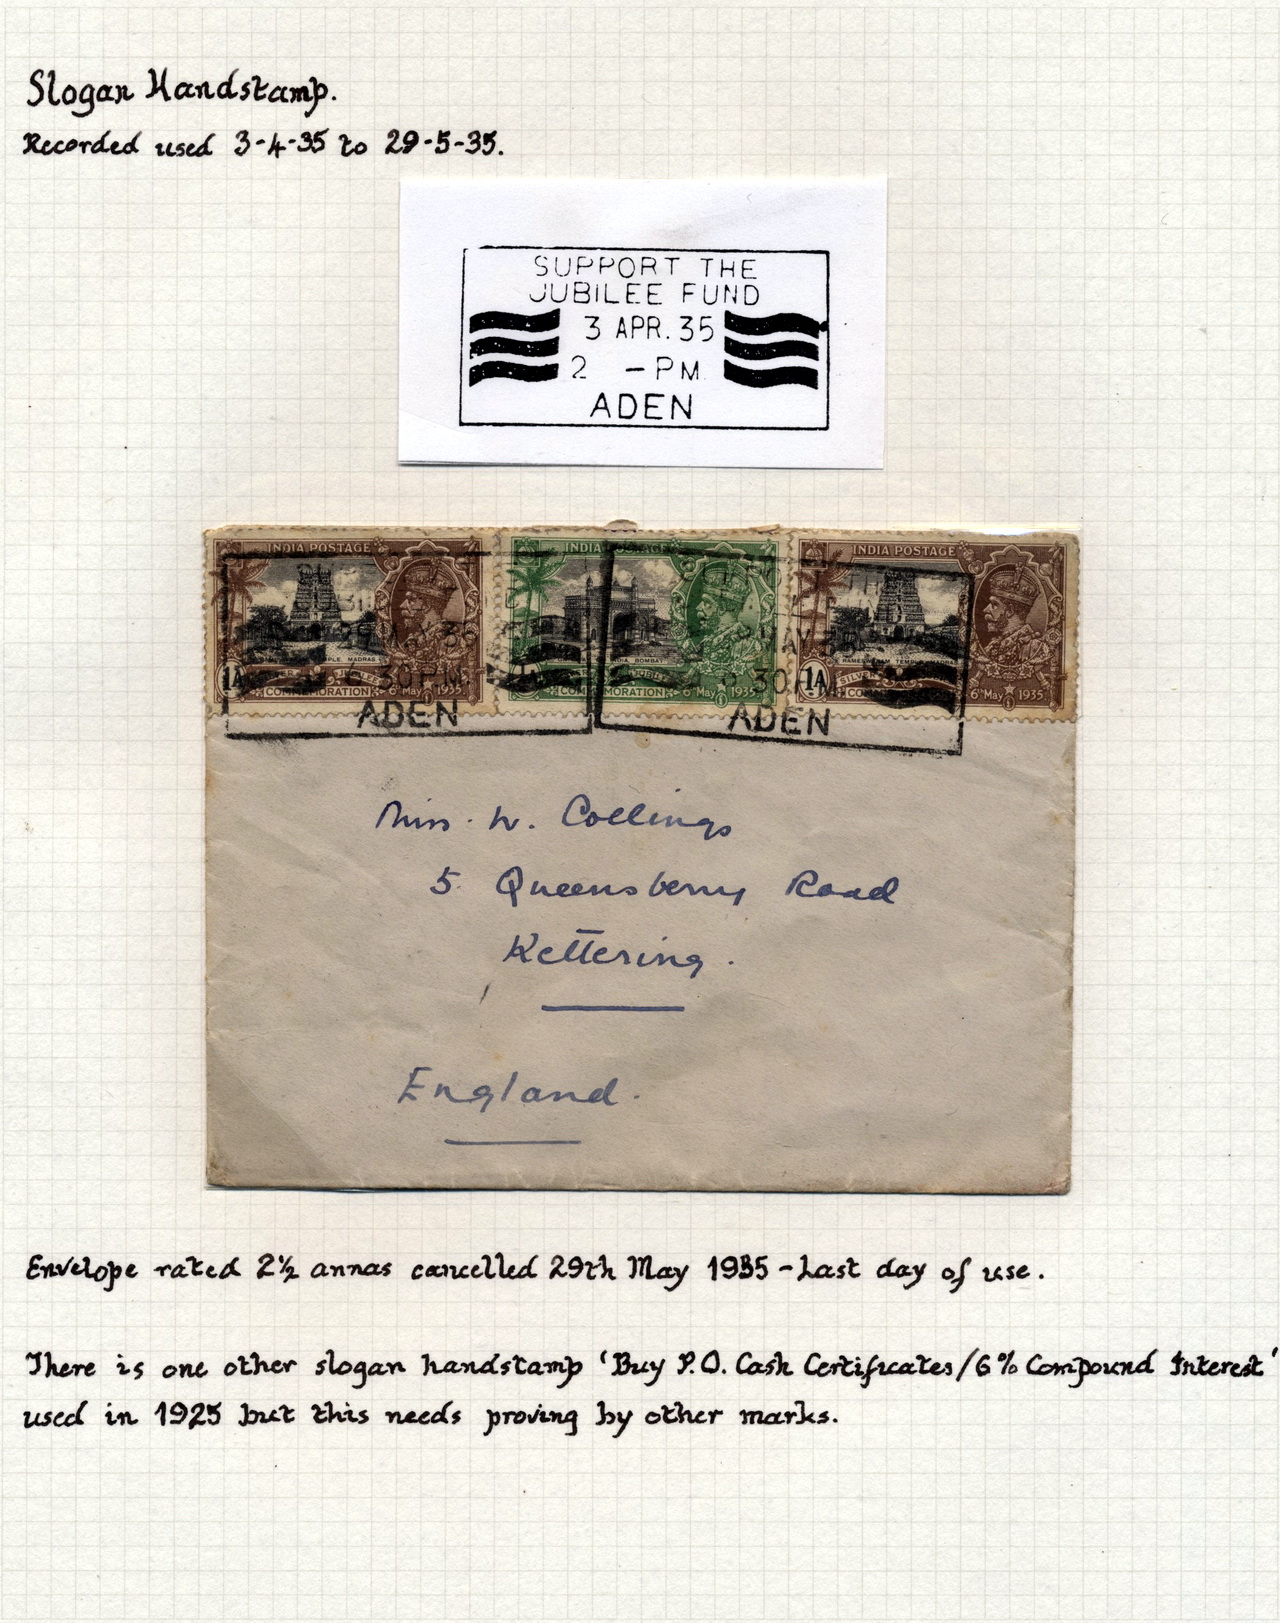 Slogan Handstamp.
Recorded used 3-4-35 to 29-5-35.
SUPPORT THE
JUBILEE FUND
3 APR. 35
2 - PM
ADEN
INDIA POSTAGE
INDIA POSTAGE
INDIA POSTAGE
MAY 35
1A
COMMEMORATION 6th May 1935
6 30PM
COMMEMORATION 6th May 1935
30PM
1A
SILVER
6th May 1935
ADEN
ADEN
Miss. W. Collings
5 Queensberry Road
Kettering.
England.
Envelope rated 2½ annas cancelled 29th May 1935 - Last day of use.
There is one other slogan handstamp 'Buy P.O. Cash Certificates/6% Compound Interest'
used in 1925 but this needs proving by other marks.